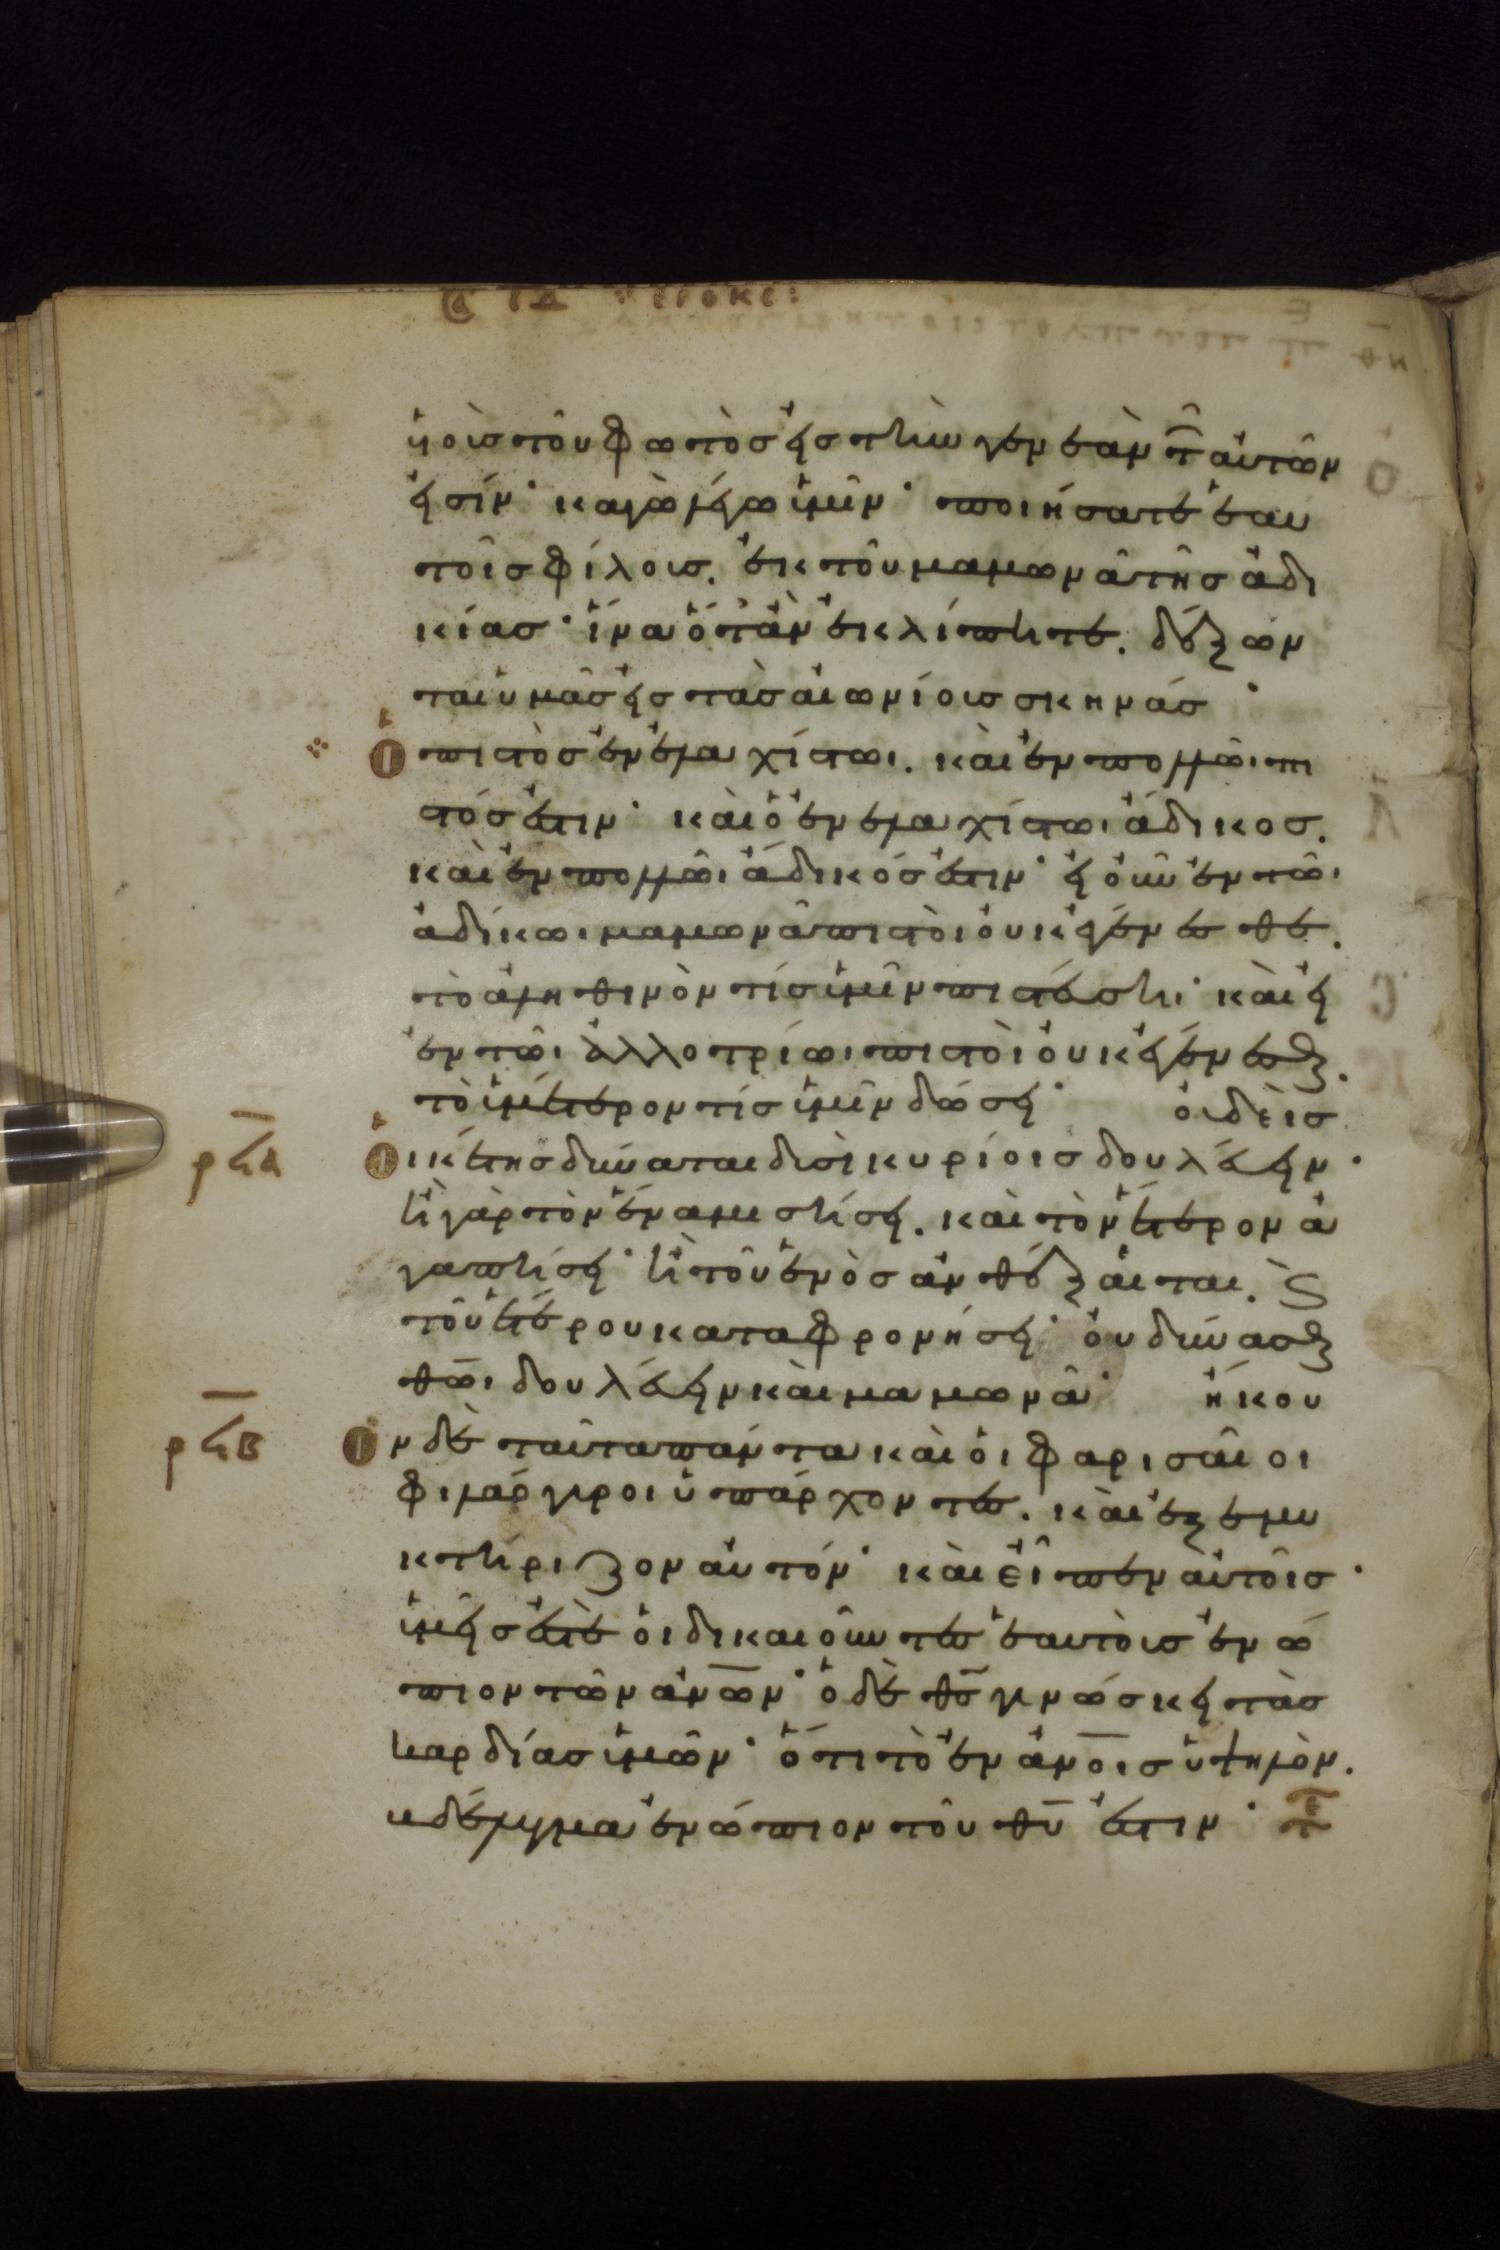 υἱοὺς τοῦ φωτὸς εἰς τὴν γενεὰν τ̑ αὐτῶν
εἰσίν· καγὼ λέγω ὑμῖν· ποιήσατε ἑαυ
τοῖς φίλοις. ἐκ τοῦ μαμωνᾶ τῆς ἀδι
κίας· ἵνα ὅταν ἐκλίπητε. δέξων
ται ὑμᾶς εἰς τὰς αἰωνίοις σκηνάς·
Ὁ πιστὸς ἐν ἐλαχίστωι. καὶ ἐν πολλῶι πι
στός ἐστιν· καὶ ὁ ἐν ἐλαχίστωι ἄδικος.
καὶ ἐν πολλῶι ἄδικός ἐστιν· εἰ οὖν ἐν τῶι
ἀδίκωι μαμωνᾶ πιστοὶ οὐκ ἐγένεσθε.
τὸ ἀληθινὸν τίς ὑμῖν πιστεύσει· καὶ εἰ
ἐν τῶι ἀλλοτρίωι πιστοὶ οὐκ ἐγένεσθε.
τὸ ὑμέτερον τίς ὑμῖν δώσει· οὐδεὶς
Οἰκέτης δύναται δυσὶ κυρίοις δουλεύειν·
ἢ γὰρ τὸν ἕνα μισήσει. καὶ τὸν ἕτερον ἀ
γαπήσει· ἢ τοῦ ἑνὸς ἀνθέξεται. ϗ
τοῦ ἑτέρου καταφρονήσει· οὐ δύνασθε
θ̅ω̅ι δουλεύειν καὶ μαμωνᾶ· ἤκου
ρϟα
Ον δὲ ταῦτα πάντα καὶ οἱ φαρισαῖοι
ρϟβ
φιλάργυροι ὑπάρχοντες. καὶ ἐξεμυ
κτήριζον αὐτόν· καὶ εἶπεν αὐτοῖς·
ὑμεῖς ἐστὲ οἱ δικαιοῦντες ἑαυτοὺς ἐνώ
πιον τῶν ἀν̅ω̅ν· ὁ δὲ θ̅ς̅ γινώσκει τὰς
καρδίας ὑμῶν· ὅτι τὸ ἐν ἀν̅ο̅ις ὑψηλὸν.
βδέλυγμα ἐνώπιον τοῦ θ̅υ̅ ἐστιν·